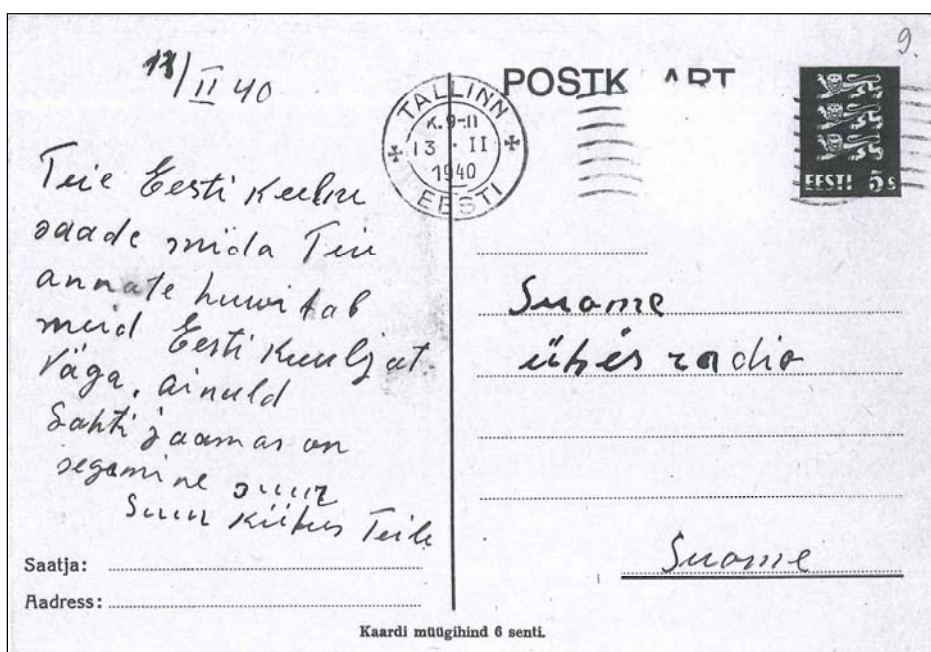 9.
13/II 40
POSTKAART
TALLINN
K. 9-11
13 . II
1940
EESTI
EESTI 5s
Teie Eesti keelne
saade mida Teie
annate huwitab
meid Eesti kuuljat
väga, ainuld
Lahti jaamas on
segamine suur
Suur kiitus Teile
Suome
ühes radio
Suome
Saatja:
Aadress:
Kaardi müügihind 6 senti.